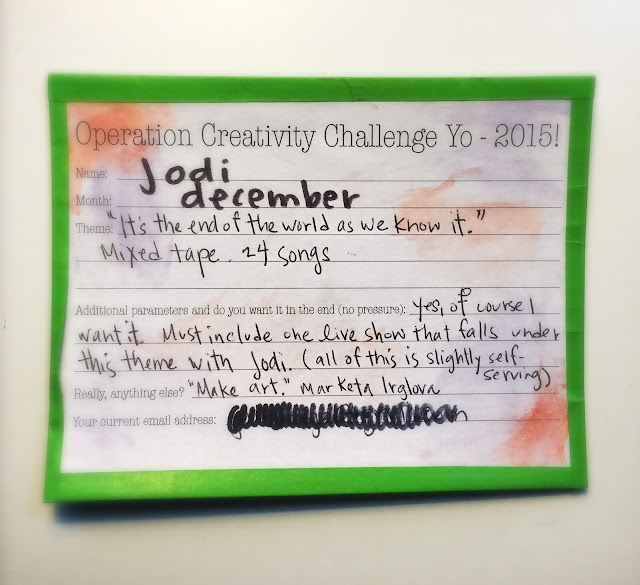 Operation Creativity Challenge Yo - 2015!
Name: Jodi
Month: december
Theme: "It's the end of the world as we know it."
Mixed tape. 24 songs
Additional parameters and do you want it in the end (no pressure): yes, of course I
want it. Must include one live show that falls under
this theme with Jodi. (all of this is slightly self-
serving)
Really, anything else? "Make art." Marketa Irglova
Your current email address: